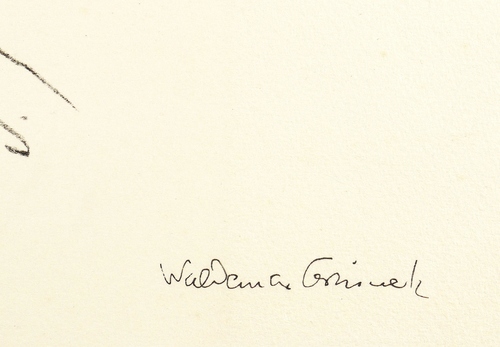 Waldemar Grzimek